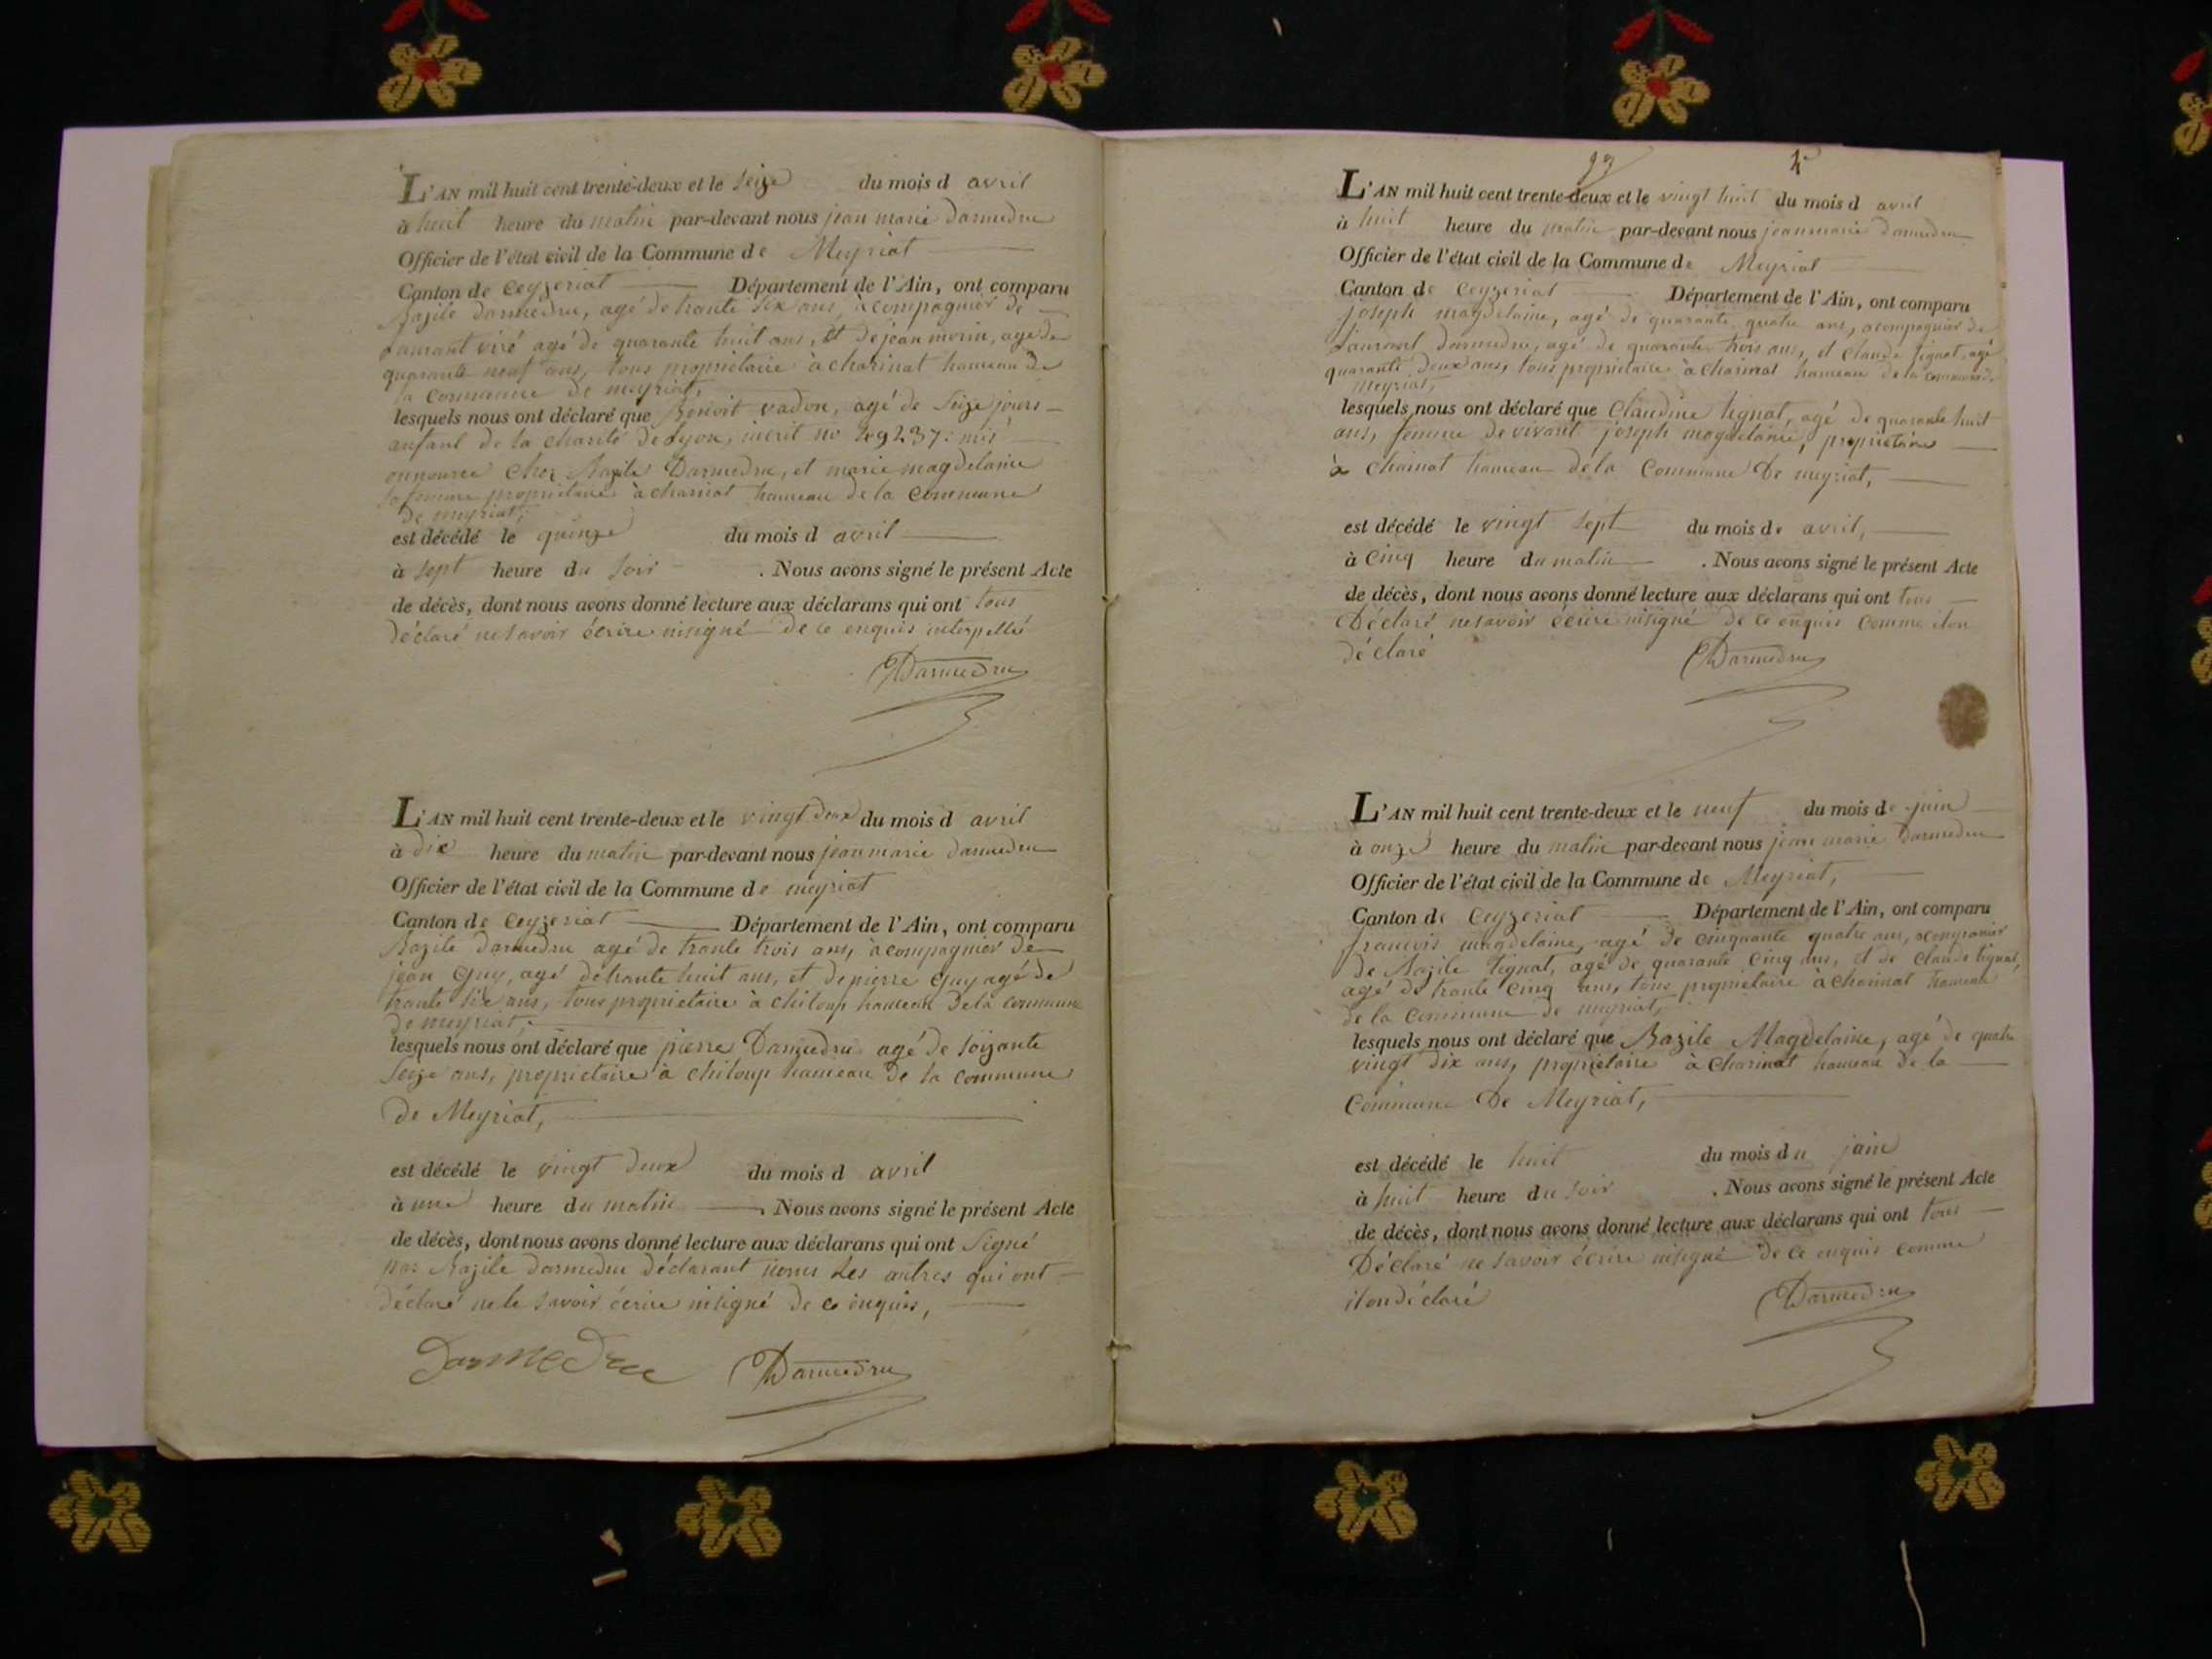 L'AN mil huit cent trente-deux et le seize du mois d avril
à huit heure du matin par-devant nous jean marie darmedru
Officier de l'état civil de la Commune de Meyriat
Canton de Ceyzeriat Département de l'Ain, ont comparu
Bazile darmedru, agé de trante six ans, acompagnier de
Laurant viré agé de quarante huit ans, et de jean morin, agé de
quarante neuf ans, tous propriétaire à charinat hameau de
la commune de meyriat,
lesquels nous ont déclaré que Benoit vadon, agé de seize jours
anfant de la charité de Lyon, inscrit no mis
ennource chez Bazile Darmedru, et marie magdelaine
sa femme propriétaire à charinat hameau de la commune
de meyriat,
est décédé le quinze du mois d avril
à sept heure du soir . Nous avons signé le présent Acte
de décès, dont nous avons donné lecture aux déclarans qui ont tous
déclaré ne savoir écrire nisigné de ce enquis interpellés
Darmedru
L'AN mil huit cent trente-deux et le vingt deux du mois d avril
à dix heure du matin par-devant nous jean marie darmedru
Officier de l'état civil de la Commune de meyriat
Canton de Ceyzeriat Département de l'Ain, ont comparu
Bazile darmedru agé de trante trois ans, acompagnier de
jean Guy, agé de trante huit ans, et de pierre Guy agé de
trante six ans, tous propriétaire à chiloup hameau de la commune
de meyriat,
lesquels nous ont déclaré que pierre Darmedru agé de soizante
seize ans, propriétaire à chiloup hameau de la commune
de Meyriat,
est décédé le vingt deux du mois d avril
à une heure du matin . Nous avons signé le présent Acte
de décès, dont nous avons donné lecture aux déclarans qui ont signé
par Bazile darmedru déclarant les autres qui ont
déclaré ne le savoir écrire nisigné de ce enquis,
Darmedru Darmedru
L'AN mil huit cent trente-deux et le vingt huit du mois d avril
à huit heure du matin par-devant nous jean marie darmedru
Officier de l'état civil de la Commune de Meyriat
Canton de Ceyzeriat Département de l'Ain, ont comparu
joseph magdelaine, agé de quarante quatre ans, acompagnier de
Laurant darmedru, agé de quarante trois ans, et claude tignat, agé
quarante deux ans, tous propriétaire à charinat hameau de la commune de
meyriat,
lesquels nous ont déclaré que Claudine tignat, agé de quarante huit
ans, femme de vivant joseph magdelaine, propriétaire
à chainat hameau de la Commune De meyriat,
est décédé le vingt sept du mois de avril,
à cinq heure du matin . Nous avons signé le présent Acte
de décès, dont nous avons donné lecture aux déclarans qui ont tous
Déclaré ne savoir écrire nisigné de ce enquis comme ilon
déclaré
Darmedru
L'AN mil huit cent trente-deux et le neuf du mois de juin
à onze heure du matin par-devant nous jean marie Darmedru
Officier de l'état civil de la Commune de Meyriat,
Canton de Ceyzeriat Département de l'Ain, ont comparu
francois magdelaine, agé de cinquante quatre ans, acompagnier
de Bazile tignat, agé de quarante cinq ans, et de claude tignat,
agé de trante cinq ans, tous propriétaire à chainat hameau
de la commune de meyriat,
lesquels nous ont déclaré que Bazile Magdelaine, agé de quatre
vingt dix ans, propriétaire à charinat hameau de la
Commune De Meyriat,
est décédé le huit du mois du juin
à huit heure du soir . Nous avons signé le présent Acte
de décès, dont nous avons donné lecture aux déclarans qui ont tous
Déclaré ne savoir écrire nisigné de ce enquis comme
ilon déclaré
Darmedru